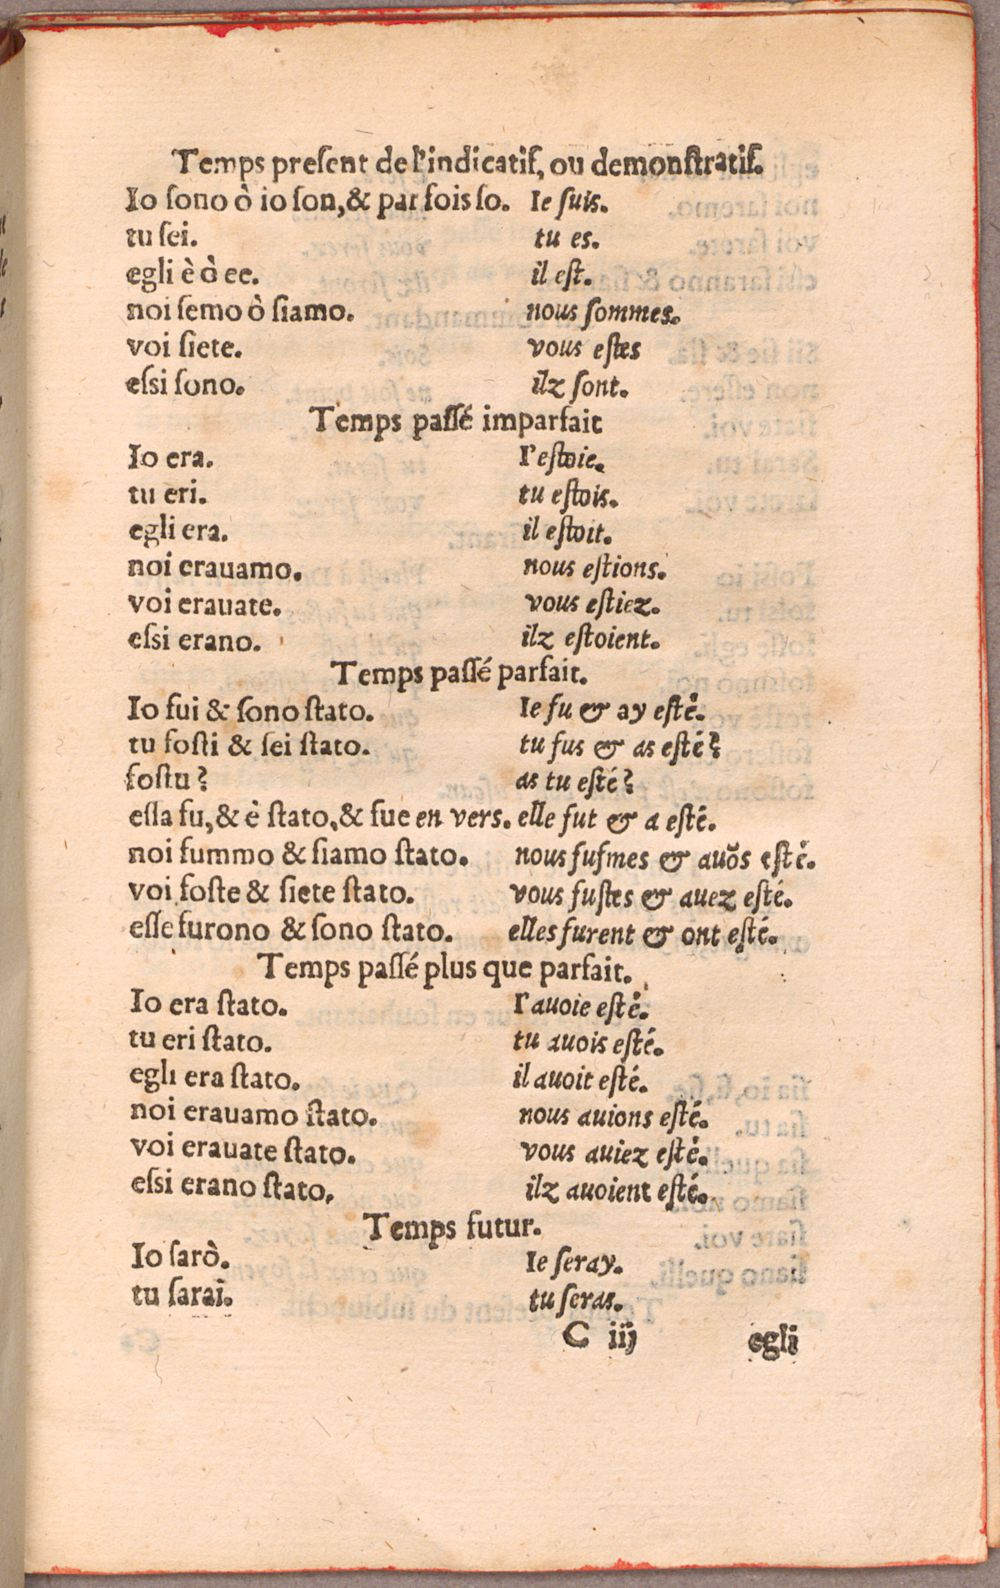 Temps preſent de l'indicatif, ou demonſtratif.
Io ſono ò io ſon,& par fois ſo. Ie ſuis.
tu ſei. tu es.
egli è ò ee. il eſt.
noi ſemo ò ſiamo. nous ſommes.
voi ſiete. vous eſtes
eſſi ſono. ilz ſont.
Temps paſſé imparfait
Io era. I'eſtoie.
tu eri. tu eſtois.
egli era. il eſtoit.
noi erauamo. nous eſtions.
voi erauate. vous eſtiez.
eſſi erano. ilz eſtoient.
Temps paſſé parfait.
Io fui & ſono ſtato. Ie fu & ay eſté.
tu foſti & ſei ſtato. tu fus & as eſté?
foſtu? as tu eſté?
eſſa fu,& è ſtato,& fue en vers. elle fut & a eſté.
noi fummo & ſiamo ſtato. nous fuſmes & auõs eſté.
voi foſte & ſiete ſtato. vous fuſtes & auez eſté.
eſſe furono & ſono ſtato. elles furent & ont eſté.
Temps paſſé plus que parfait.
Io era ſtato. I'auoie eſté.
tu eri ſtato. tu auois eſté.
egli era ſtato. il auoit eſté.
noi erauamo ſtato. nous auions eſté.
voi erauate ſtato. vous auiez eſté.
eſſi erano ſtato. ilz auoient eſté.
Temps futur.
Io ſarò. Ie ſeray.
tu ſarai. tu ſeras.
C iij egli